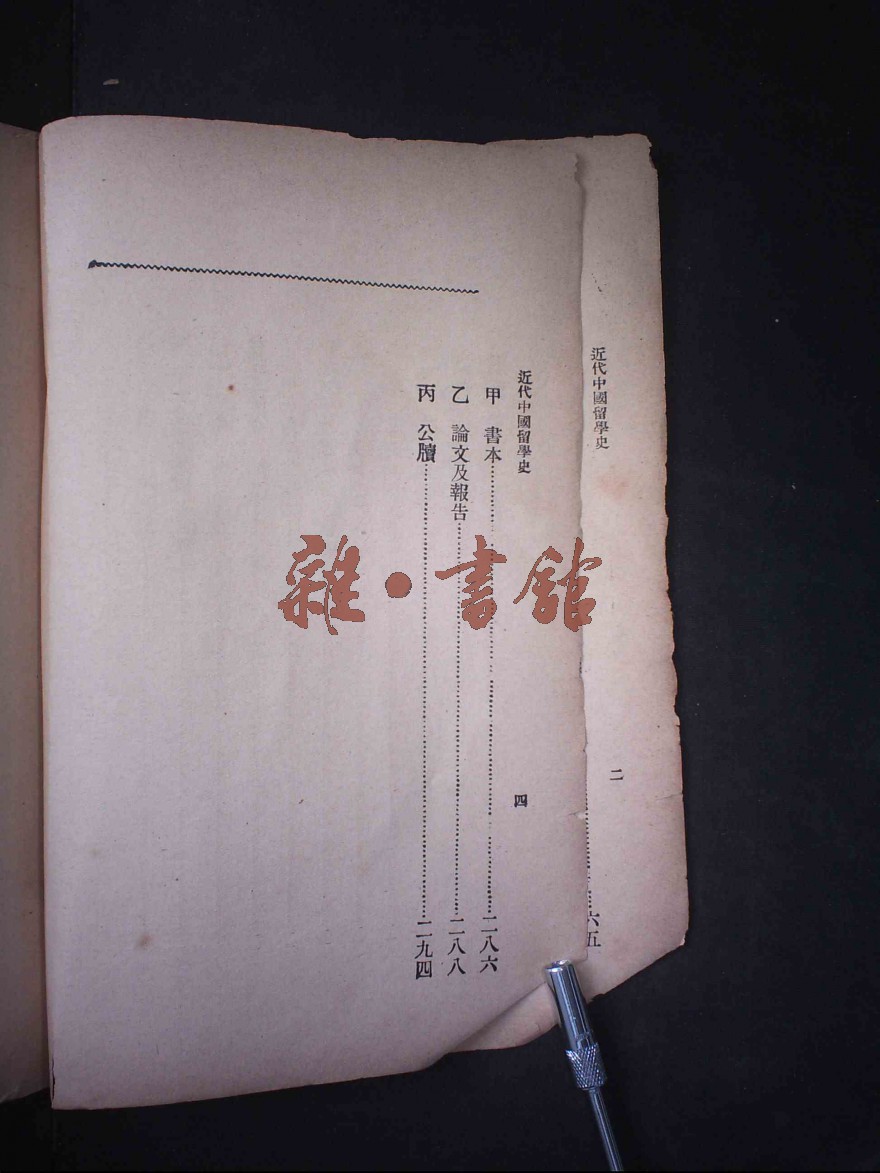 近代中國留學史
二
六五
近代中國留學史
四
甲 書本……二八六
乙 論文及報告……二八八
丙 公牘……二九四
雜·書館